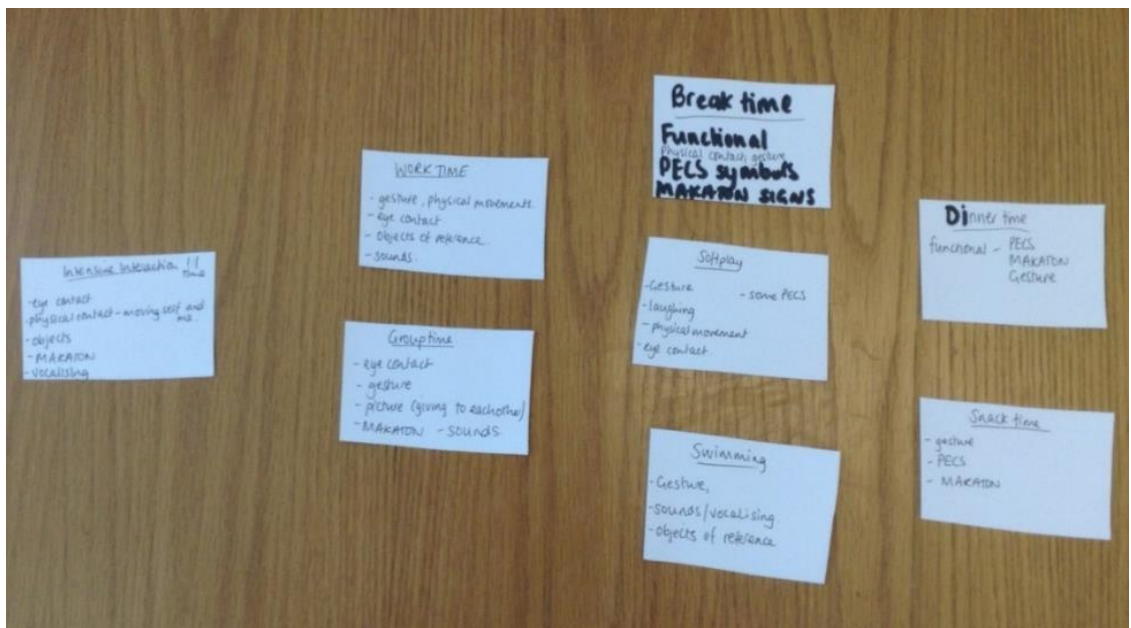 Intensive Interaction 1:1
time
-eye contact
-physical contact - moving self and
me.
-objects
-MAKATON
-vocalising
WORK TIME
- gesture, physical movements.
- eye contact.
- objects of reference.
- sounds.
Grouptime
- eye contact
- gesture
- picture (giving to eachother)
- MAKATON - SOUNDS.
Break time
Functional
Physical contact, gesture
PECS symbols
MAKATON SIGNS
Softplay
-Gesture - some PECS
-laughing
- physical movement
-eye contact.
Swimming
-Gesture,
-sounds/vocalising.
-objects of reference
Dinner time
functional - PECS
MAKATON
Gesture
Snack time
- gesture
- PECS
- MAKATON